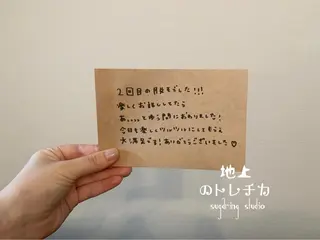 2回目の脱毛でした!!!
楽しくお話ししてたら
あ。。。。とゆう間におわりました!
今日も楽しくツルツルにしてもらえ
大満足です!ありがとうございました♡
地上
のトレチカ
sugd-ing studio